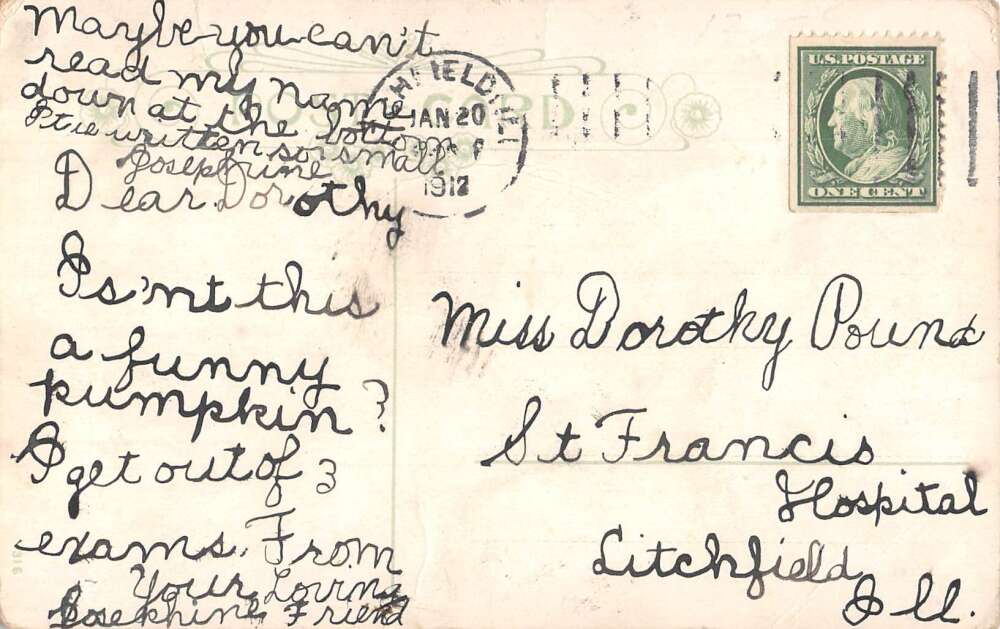 Maybe you can't
read my name
down at the bottom
It is written so small
Josephine
Dear Dorothy
Is'nt this
a funny
pumpkin?
I get out of 3
exams. From
Your Loving
Josephine Friend
POST CARD
JAN 20
1912
U.S. POSTAGE
ONE CENT
Miss Dorothy Pound
St Francis
Hospital
Litchfield
Ill.